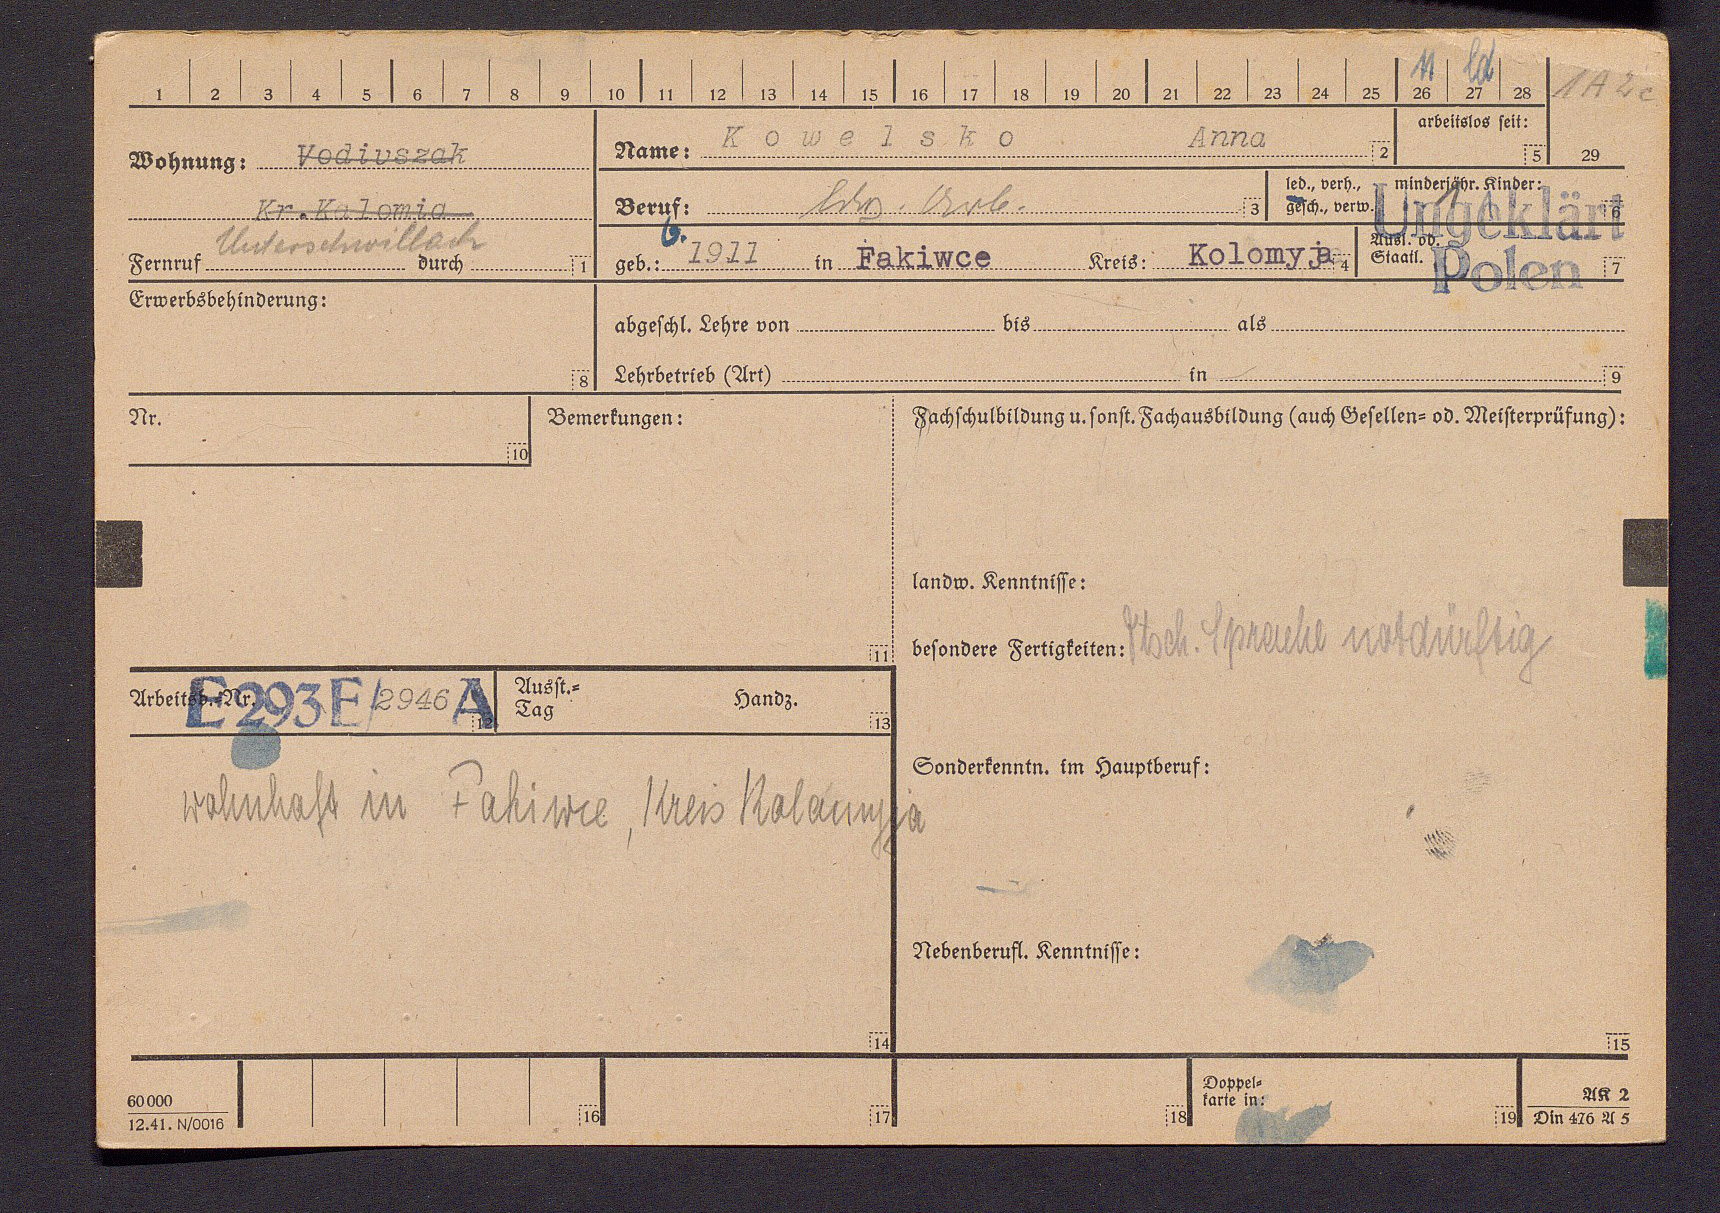 1 2 3 4 5 6 7 8 9 10 11 12 13 14 15 16 17 18 19 20 21 22 23 24 25 26 27 28
11 1A2c
Wohnung: Vodivszak
Kr. Kalomia
Unterschwillach
Fernruf durch 1
Name: Kowelsko Anna 2
arbeitslos seit: 5
29
Beruf: 3
led., verh., gesch., verw.
minderjähr. Kinder: 1 6
Ungeklärt
6.
geb.: 1911 in Fakiwce Kreis: Kolomyja 4
Ausl. od. Staatl. 7
Polen
Erwerbsbehinderung: 8
abgeschl. Lehre von bis als
Lehrbetrieb (Art) in 9
Nr. 10
Bemerkungen: 11
Fachschulbildung u. sonst. Fachausbildung (auch Gesellen= od. Meisterprüfung):
landw. Kenntnisse:
besondere Fertigkeiten: Dtsch. Sprache notdürftig
Arbeitsb.-Nr. E 293 E/2946 A 12
Ausst.= Tag Handz. 13
wohnhaft in Fakiwce, Kreis Kolomyja
14
Sonderkenntn. im Hauptberuf:
Nebenberufl. Kenntnisse:
15
60000
12.41. N/0016
16 17 18
Doppel=
karte in: 19
AK 2
Din 476 A 5